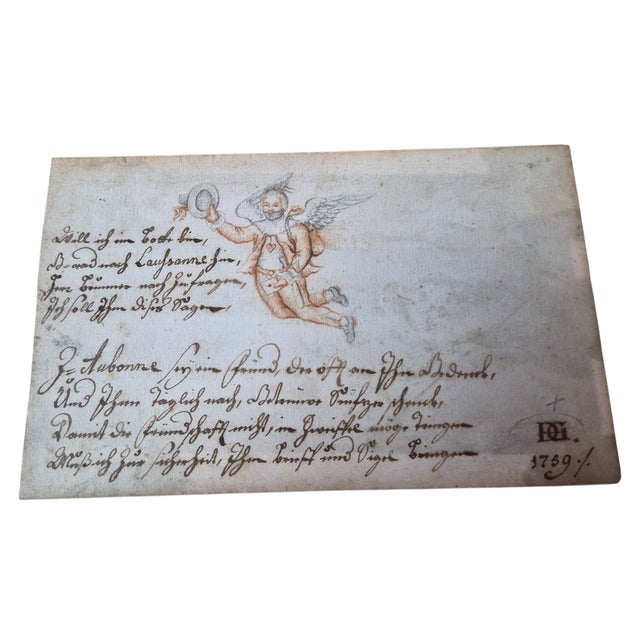 Weill ich ein botte bin,
Gerad nach Laussanne hin,
Herr Brunner nach Zufragen,
Ich soll Ihm dises Sagen,
Zu Aubonne sey ein freünd, der offt an Ihn Gedenck,
Und Ihm täglich nach, Seüfzer schenck,
Damit die freündschafft nicht, in Zweiffel möge dringen
Muß ich zur sicherheit, Ihm brieff und Sigel bringen
1759./.